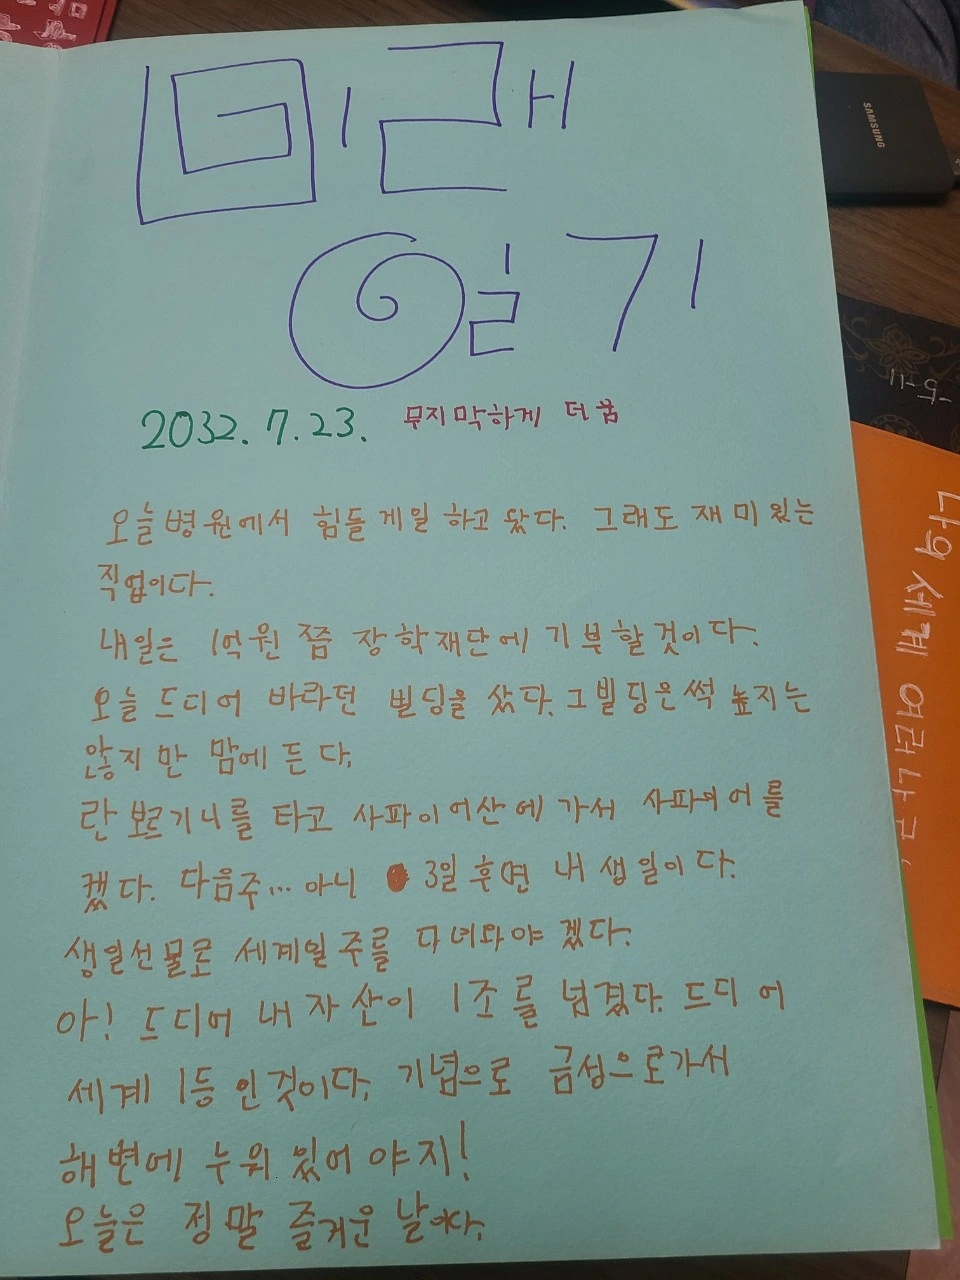 미래
일기
2032. 7. 23. 무지막하게 더움
오늘 병원에서 힘들게일 하고 왔다. 그래도 재미있는
직업이다.
내일은 1억원 쯤 장학재단에 기부할것이다.
오늘 드디어 바라던 빌딩을 샀다. 그 빌딩은 썩 높지는
않지만 맘에 든다.
란보르기니를 타고 사파이어산에 가서 사파이어를
캤다. 다음주... 아니 3일 후면 내 생일이다.
생일선물로 세계일주를 다녀와야겠다.
아! 드디어 내 자산이 1조를 넘겼다. 드디어
세계 1등인것이다. 기념으로 금성으로가서
해변에 누워 있어야지!
오늘은 정말 즐거운 날이다.
SAMSUNG
5-11
나의 세계 여러나라